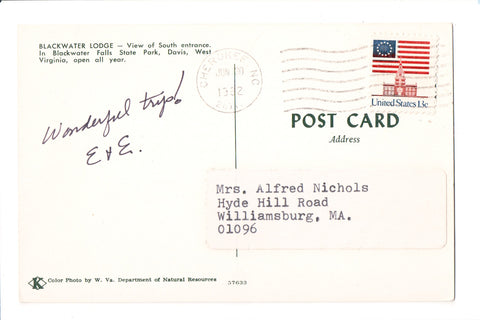 BLACKWATER LODGE — View of South entrance.
In Blackwater Falls State Park, Davis, West
Virginia, open all year.
Wonderful trip!
E & E.
CHEROKEE NC
JUN
United States 13c
POST CARD
Address
Mrs. Alfred Nichols
Hyde Hill Road
Williamsburg, MA.
01096
K Color Photo by W. Va. Department of Natural Resources
57633